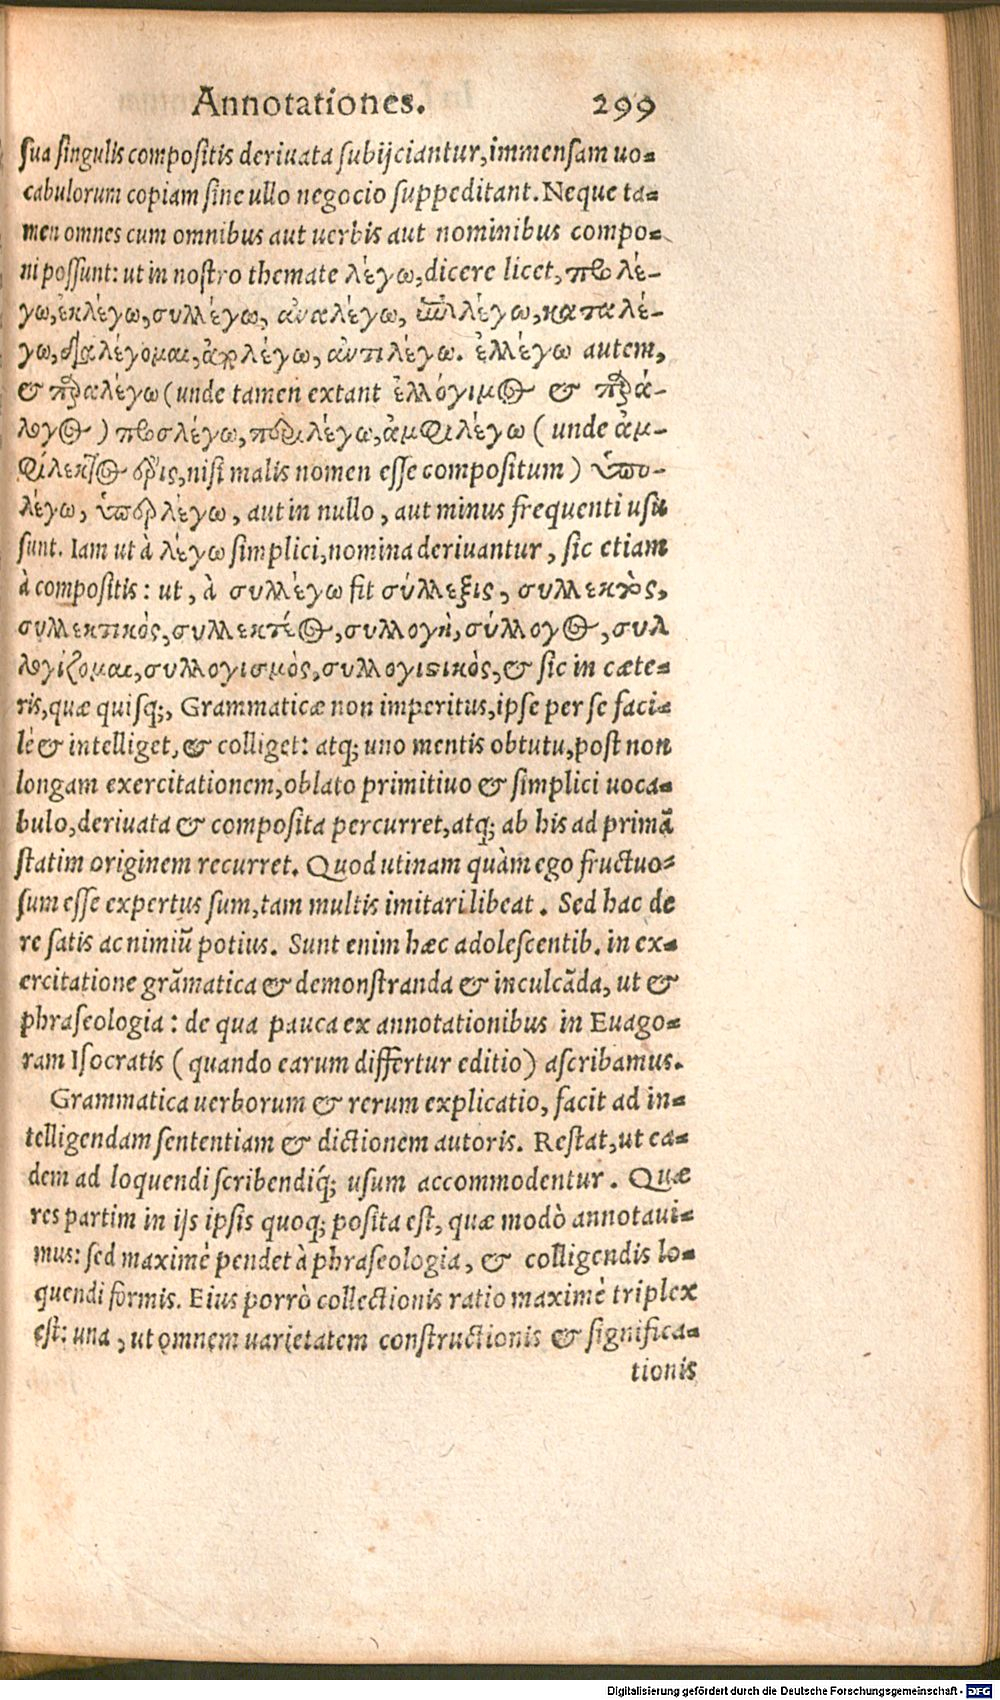 Annotationes. 299
sua singulis compositis deriuata subijciantur, immensam uo-
cabulorum copiam sine ullo negocio suppeditant. Neque ta-
men omnes cum omnibus aut uerbis aut nominibus compo-
ni possunt: ut in nostro themate λέγω, dicere licet, προλέ-
γω, ἐκλέγω, συλλέγω, ἀναλέγω, ἐπιλέγω, καταλέ-
γω, διαλέγομαι, λέγω, ἀντιλέγω. ἐλλέγω autem,
& παραλέγω (unde tamen extant ἐλλόγιμος & παρά-
λογος) προσλέγω, περιλέγω, ἀμφιλέγω (unde ἀμ-
φίλεκτος ἔρις, nisi malis nomen esse compositum) ὑπο-
λέγω, ὑπερλέγω, aut in nullo, aut minus frequenti usu
sunt. Iam ut à λέγω simplici, nomina deriuantur, sic etiam
à compositis: ut, à συλλέγω fit σύλλεξις, συλλεκτὸς,
συλλεκτικὸς, συλλεκτέος, συλλογὴ, σύλλογος, συλ
λογίζομαι, συλλογισμὸς, συλλογιστικὸς, & sic in cæte-
ris, quæ quisq;, Grammaticæ non imperitus, ipse per se faci-
lè & intelliget, & colliget: atq; uno mentis obtutu, post non
longam exercitationem, oblato primitiuo & simplici uoca-
bulo, deriuata & composita percurret, atq; ab his ad primā
statim originem recurret. Quod utinam quàm ego fructuo-
sum esse expertus sum, tam multis imitari libeat. Sed hac de
re satis ac nimiū potius. Sunt enim hæc adolescentib. in ex-
ercitatione grāmatica & demonstranda & inculcāda, ut &
phraseologia: de qua pauca ex annotationibus in Euago-
ram Isocratis (quando earum differtur editio) ascribamus.
Grammatica uerborum & rerum explicatio, facit ad in-
telligendam sententiam & dictionem autoris. Restat, ut ea-
dem ad loquendi scribendiq́; usum accommodentur. Quæ
res partim in ijs ipsis quoq; posita est, quæ modò annotaui-
mus: sed maximè pendet à phraseologia, & colligendis lo-
quendi formis. Eius porrò collectionis ratio maximè triplex
est: una, ut omnem uarietatem constructionis & significa-
tionis
Digitalisierung gefördert durch die Deutsche Forschungsgemeinschaft - DFG